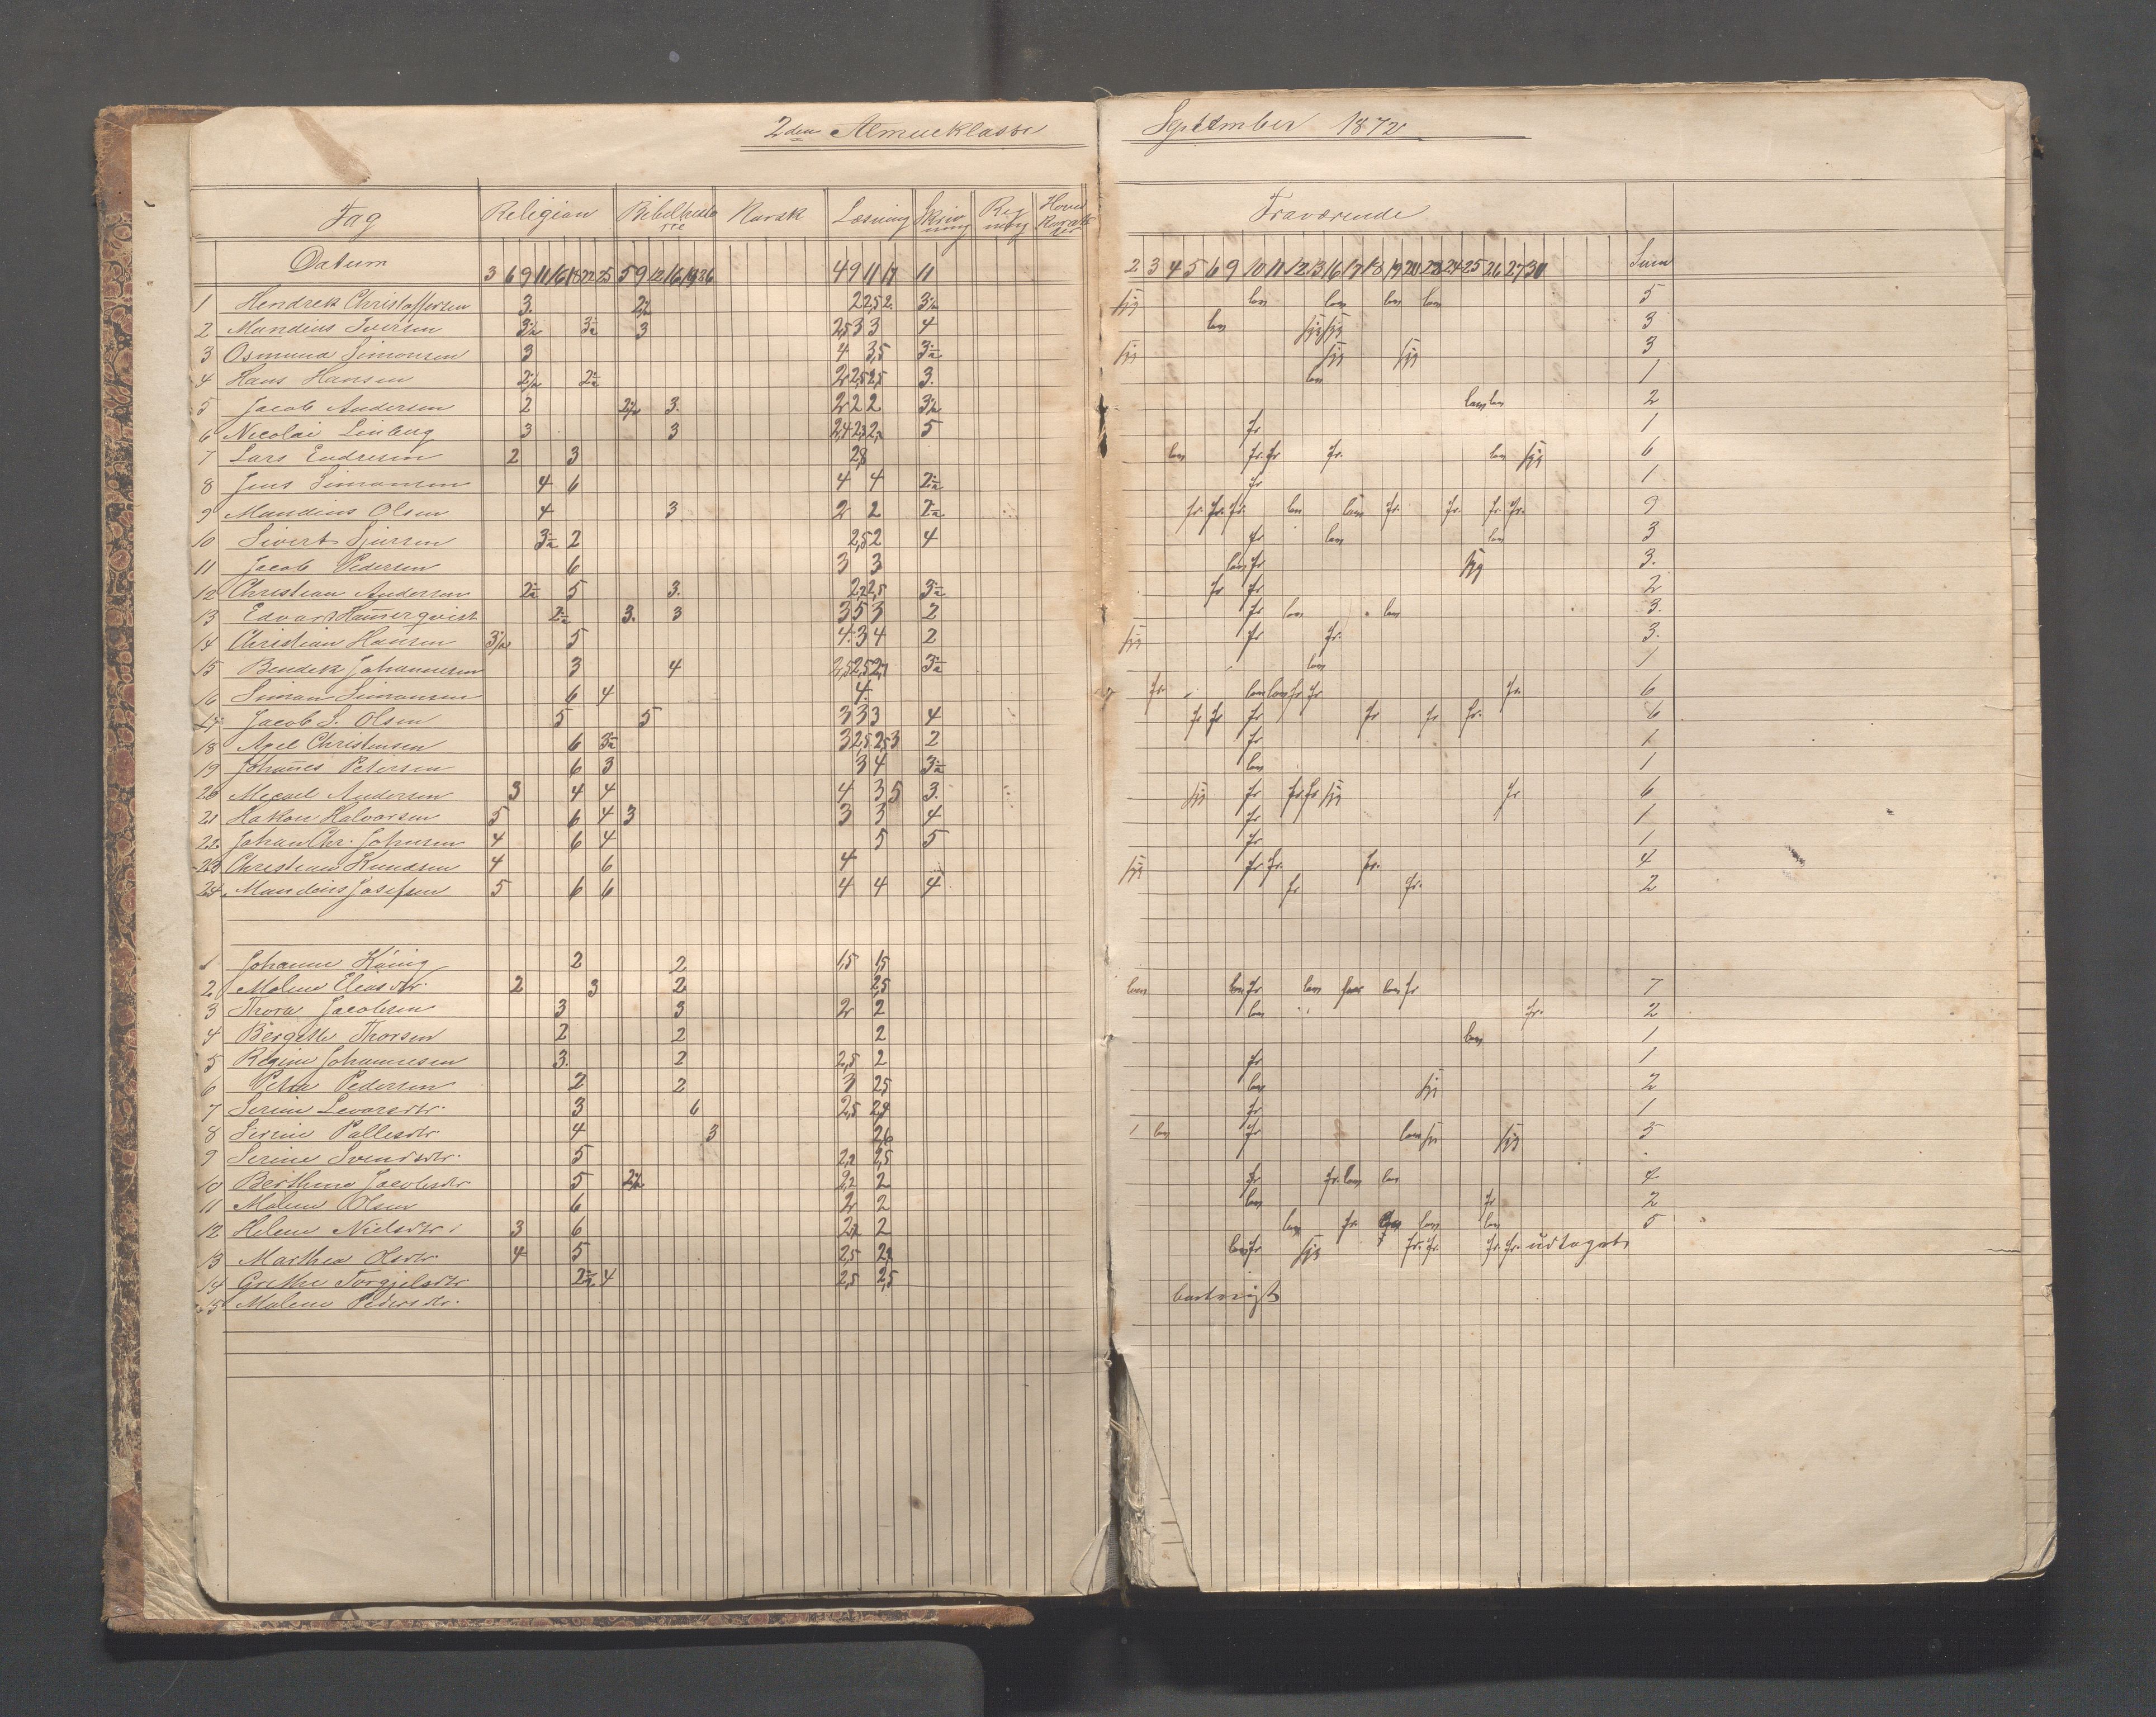 2den Almueklasse
September 1872
Fag Religion Bibelhisto Norsk Læsning Skriv Reg Hoved Fraværende
rie ning ning Karakt
ter
Datum 3 6 9 11 16 18 22 25 5 9 12 16 19 26 4 9 11 17 11 2 3 4 5 6 9 10 11 12 13 16 17 18 19 20 23 24 25 26 27 30 Sum
1 Hendrek Christoffersen 3. 2 1/2 2 2,5 2. 3 1/2 syg lov lov lov lov 5
2 Mandius Iversen 3 1/2 3 1/2 3 2,5 3 3 4 lov syg syg 3
3 Osmund Simonsen 3 4 3,5 3 1/2 syg syg syg 3
4 Hans Hansen 2 1/2 2 1/2 2 2,5 2,5 3. lov 1
5 Jacob Andersen 2 2 1/2 3. 2 2 2 3 1/2 lov lov 2
6 Nicolai Linberg 3 3 2,4 5 fr 1
7 Lars Endresen 2 3 2,8 lov fr. fr fr. lov syg 6
8 Jens Simonsen 4 6 4 4 2 1/2 fr 1
9 Mandius Olsen 4 3 2 2 2 1/2 fr. fr. fr. lov lov fr. fr. fr. fr. 9
10 Sivert Sjursen 3 1/2 2 2,5 2 4 fr lov lov 3
11 Jacob Pedersen 6 3 3 lov fr syg 3.
12 Christian Andersen 2 1/2 5 3. 2,2 2,5 3 1/2 fr fr 2
13 Edvard 2 1/2 3. 3 3 5 3 2 fr lov lov 3.
14 Christian Hansen 3 1/2 5 4. 3 4 2 syg fr fr. 3.
15 Bendek Johannesen 3 4 2,5 2,5 2,7 3 1/2 lov 1
16 Simon Simonsen 6 4 4. fr. lov lov fr fr fr. 6
17 Jacob S. Olsen 5 5 3 3 3 4 fr fr fr fr fr fr. 6
18 Axel Christensen 6 3 1/2 3 2,5 2,5 3 2 fr 1
19 Johanes Petersen 6 3 3 4 3 1/2 lov 1
20 Mecael Andersen 3 4 4 4 3 5 3. syg fr fr fr syg fr 6
21 Hakon Halvorsen 5 6 4 3 3 3 4 fr 1
22. Johan Chr. Johnsen 4 6 4 5 5 fr 1
23 Christian Knudsen 4 6 4 syg fr fr. fr. 4
24 Mandius Josefsen 5 6 6 4 4 4 fr fr. 2
1 Johanne König 2 2 1,5 1,5
2 Malene Eliasdtr. 2 3 2 2,5 lov lov fr lov lov fr 7
3 Thora Jacobsen 3 3 2 2 lov fr. 2
4 Bergitte Thorsen 2 2 2 lov 1
5 Regine Johannesen 3. 2 2,5 2 fr 1
6 Petra Pedersen 2 2 3 2,5 lov syg 2
7 Serine 3 6 2,5 2,4 fr 1
8 Serine Pallesdtr. 4 3 2,6 lov fr lov syg syg 5
9 Serine Svendsdtr. 5 2,2 2,5
10 Berthine Jacobsdtr 5 2 1/2 2,2 2 fr fr. lov lov 4
11 Malene Olsen 6 2 2 lov fr 2
12 Helene Nielsdtr. 3 6 2,2 2 lov fr. lov lov lov 5
13 Marthea Olsdtr. 4 5 2,5 2, lov fr syg fr. fr. fr. fr. udtaget
14 Grethe Torgjelsdtr 2 1/2 4 2,5 2,5
15 Malene Pedersdtr. bortreist